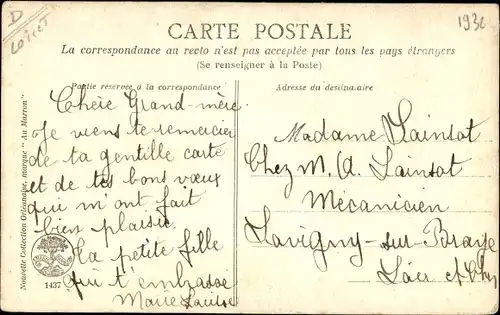 D
Loiret
1930
CARTE POSTALE
La correspondance au recto n'est pas acceptée par tous les pays étrangers
(Se renseigner à la Poste)
Partie réservée à la correspondance
Adresse du destinataire
Chère Grand-mère
Je viens te remercier
de ta gentille carte
et de tes bons vœux
qui m'ont fait
bien plaisir.
ta petite fille
qui t'embrasse
Marie Louise
Madame Lainsot
Chez M. A. Lainsot
Mécanicien
Savigny-sur-Braye
Loir et Cher
Nouvelle Collection Orléanaise, marque "Au Marron"
1437